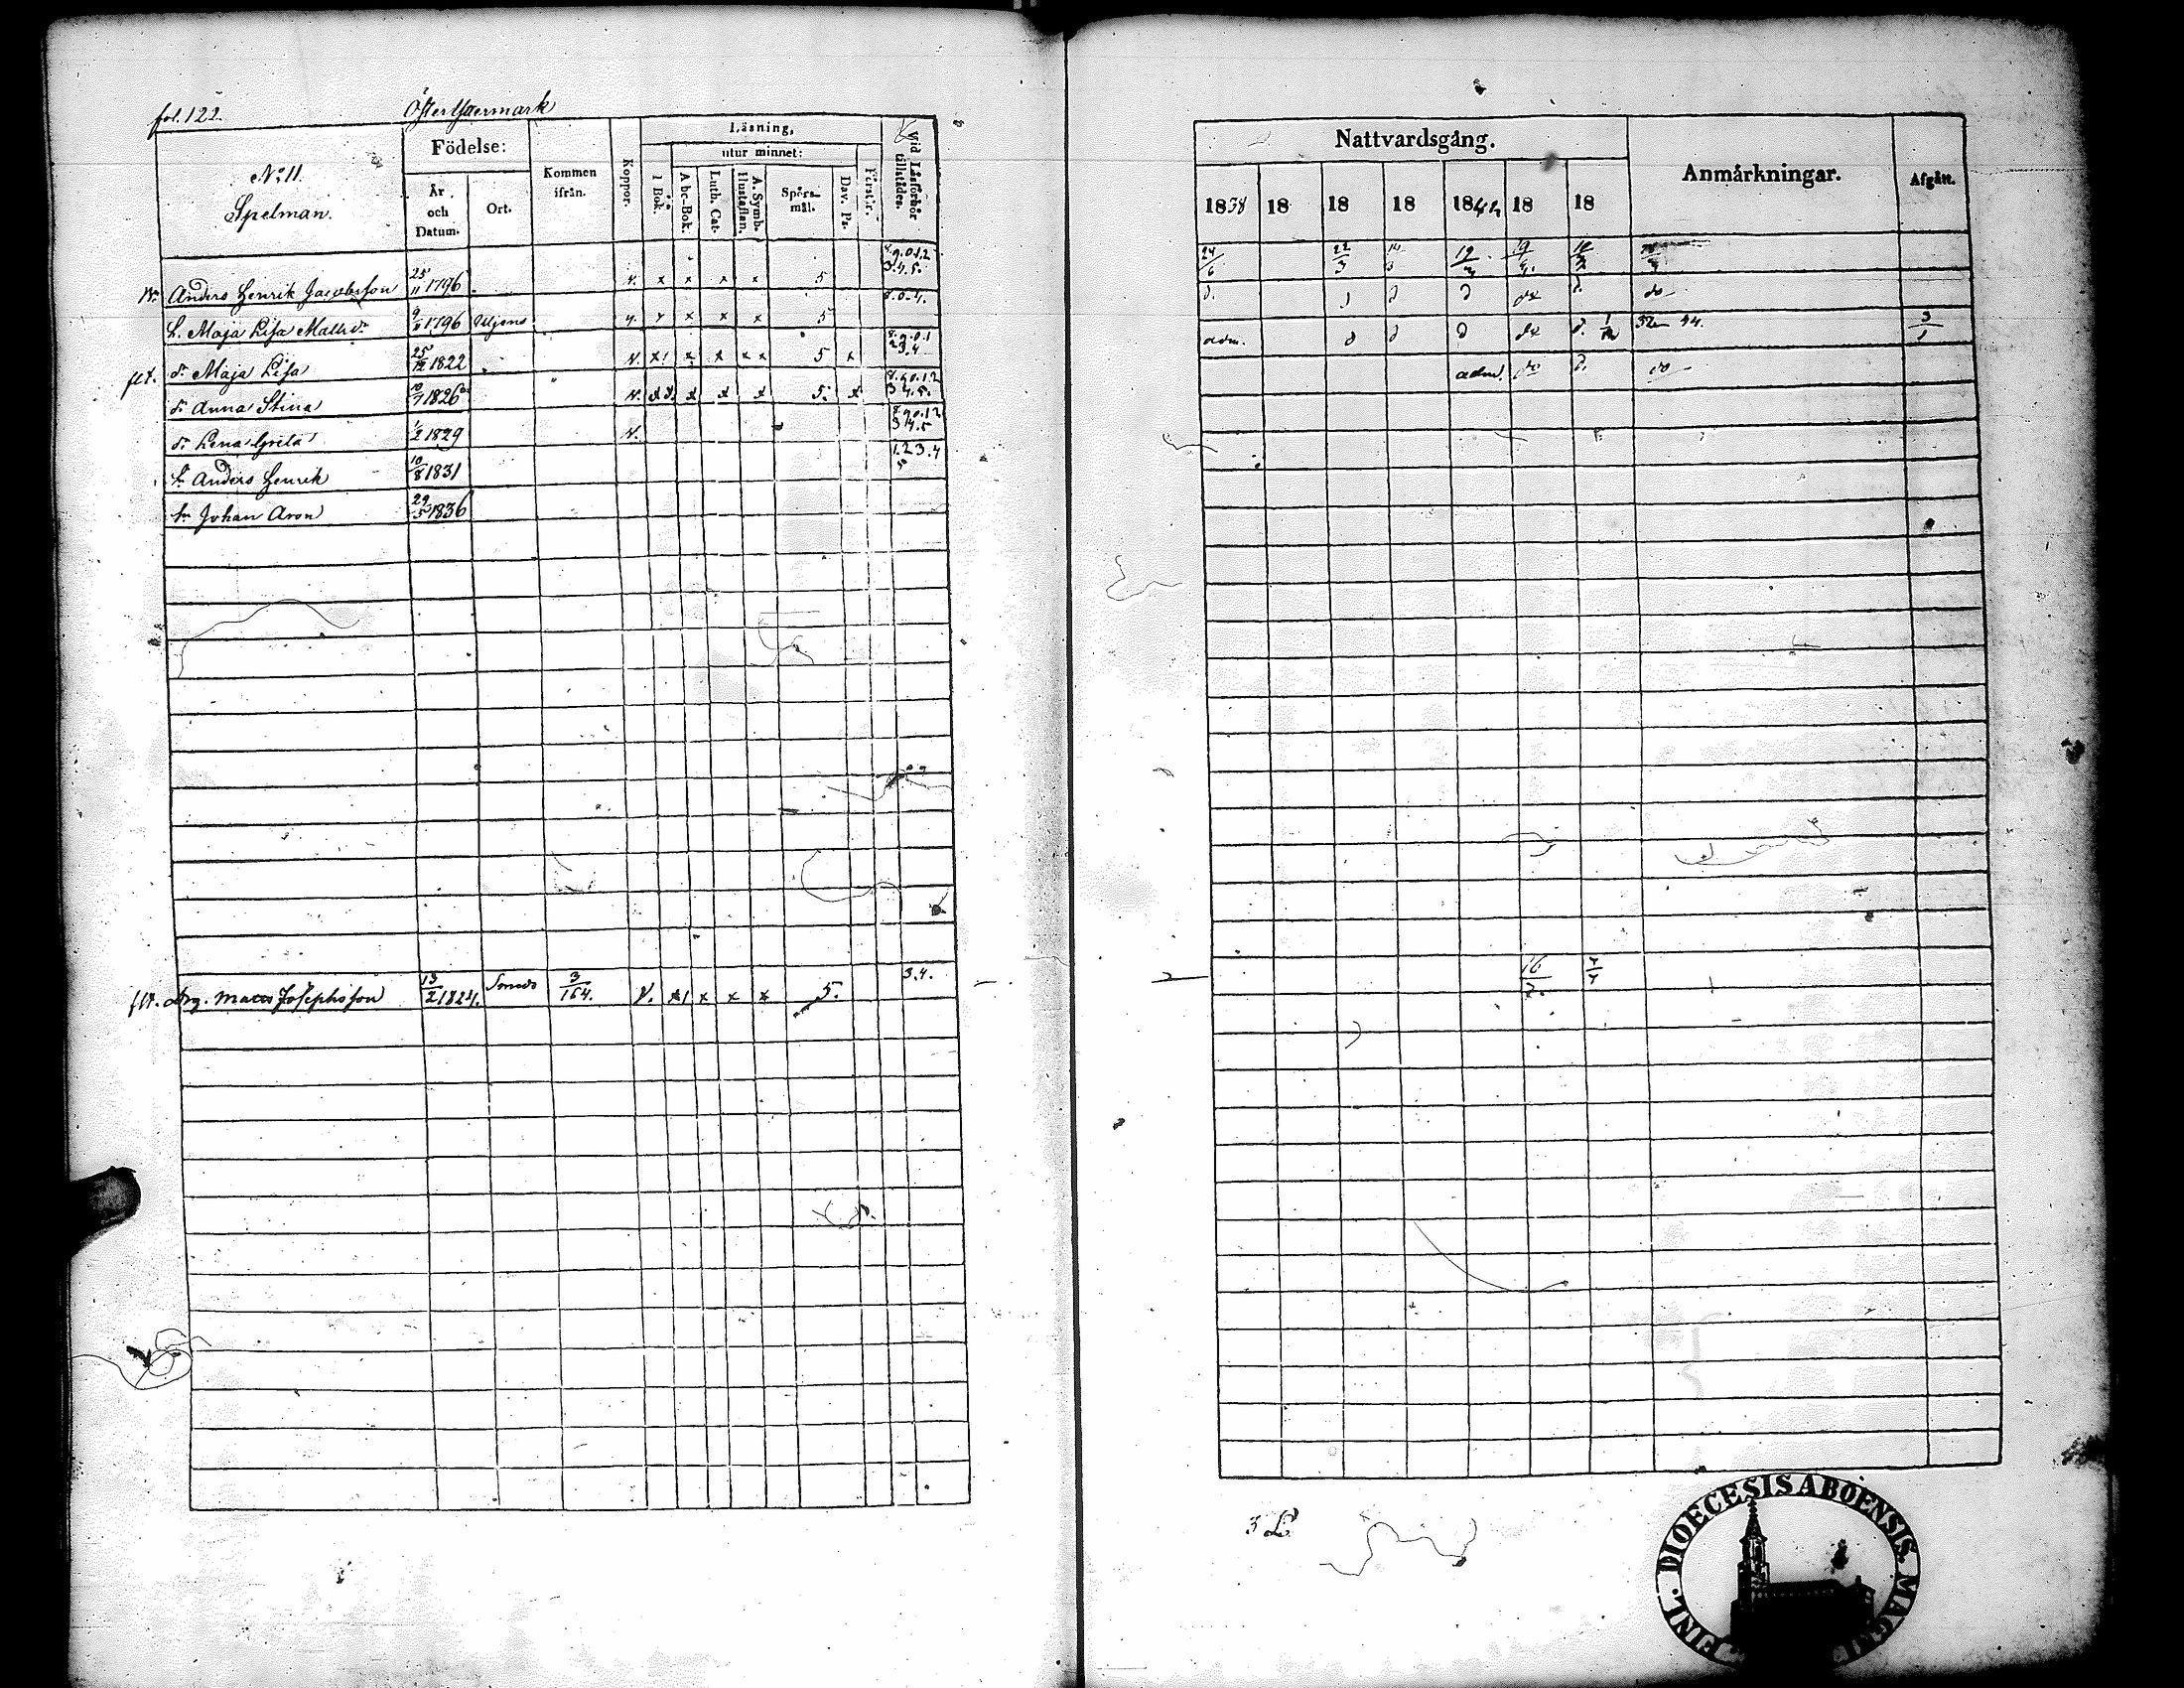 fol. 122. Öster Yttermark
No 11.
Spelman.
Födelse:
År och Datum.
Ort.
Kommen ifrån.
Koppor.
Läsning,
i Bok.
utur minnet:
A bc-Bok.
Luth. Cat.
A. Symb. Hustaflan.
Spörsmål.
Dav. Ps.
Förstår.
Vid Läsförhör tillstädes.
Anders Henrik Jacobsson 25/11 1796 v. x x x x 5 8.9.0.1.2 3.4.5.
h. Maja Lisa Mattsdr 9/8 1796 v. x x x x 5 8.0.4.
dr Maja Lisa 25/12 1822 v. x1 x x x x 5 x 8.9.0.1 2.3.4
dr Anna Stina 10/7 1826 v. x x x x x 5. x 8.9.0.1.2 3.4.5.
dr Lena Greta 1/2 1829 v. 8.9.0.1.2 3.4.5
Sn Anders Henrik 10/8 1831 1.2.3.4 5
Sn Johan Aron 29/5 1836
Drg. Matts Josephsson 13/2 1824. 3/164. v. x1 x x x 5. 3.4.
Nattvardsgång.
1838 18 18 18 184 18 18
Anmärkningar.
Afgått.
24/6 22/3
d. d d d do d. do
adm. d d d do d. 1/12 44. 3/1
adm. do d. do
16/7
3
FINL. DIOECESIS ABOENSIS. MAG